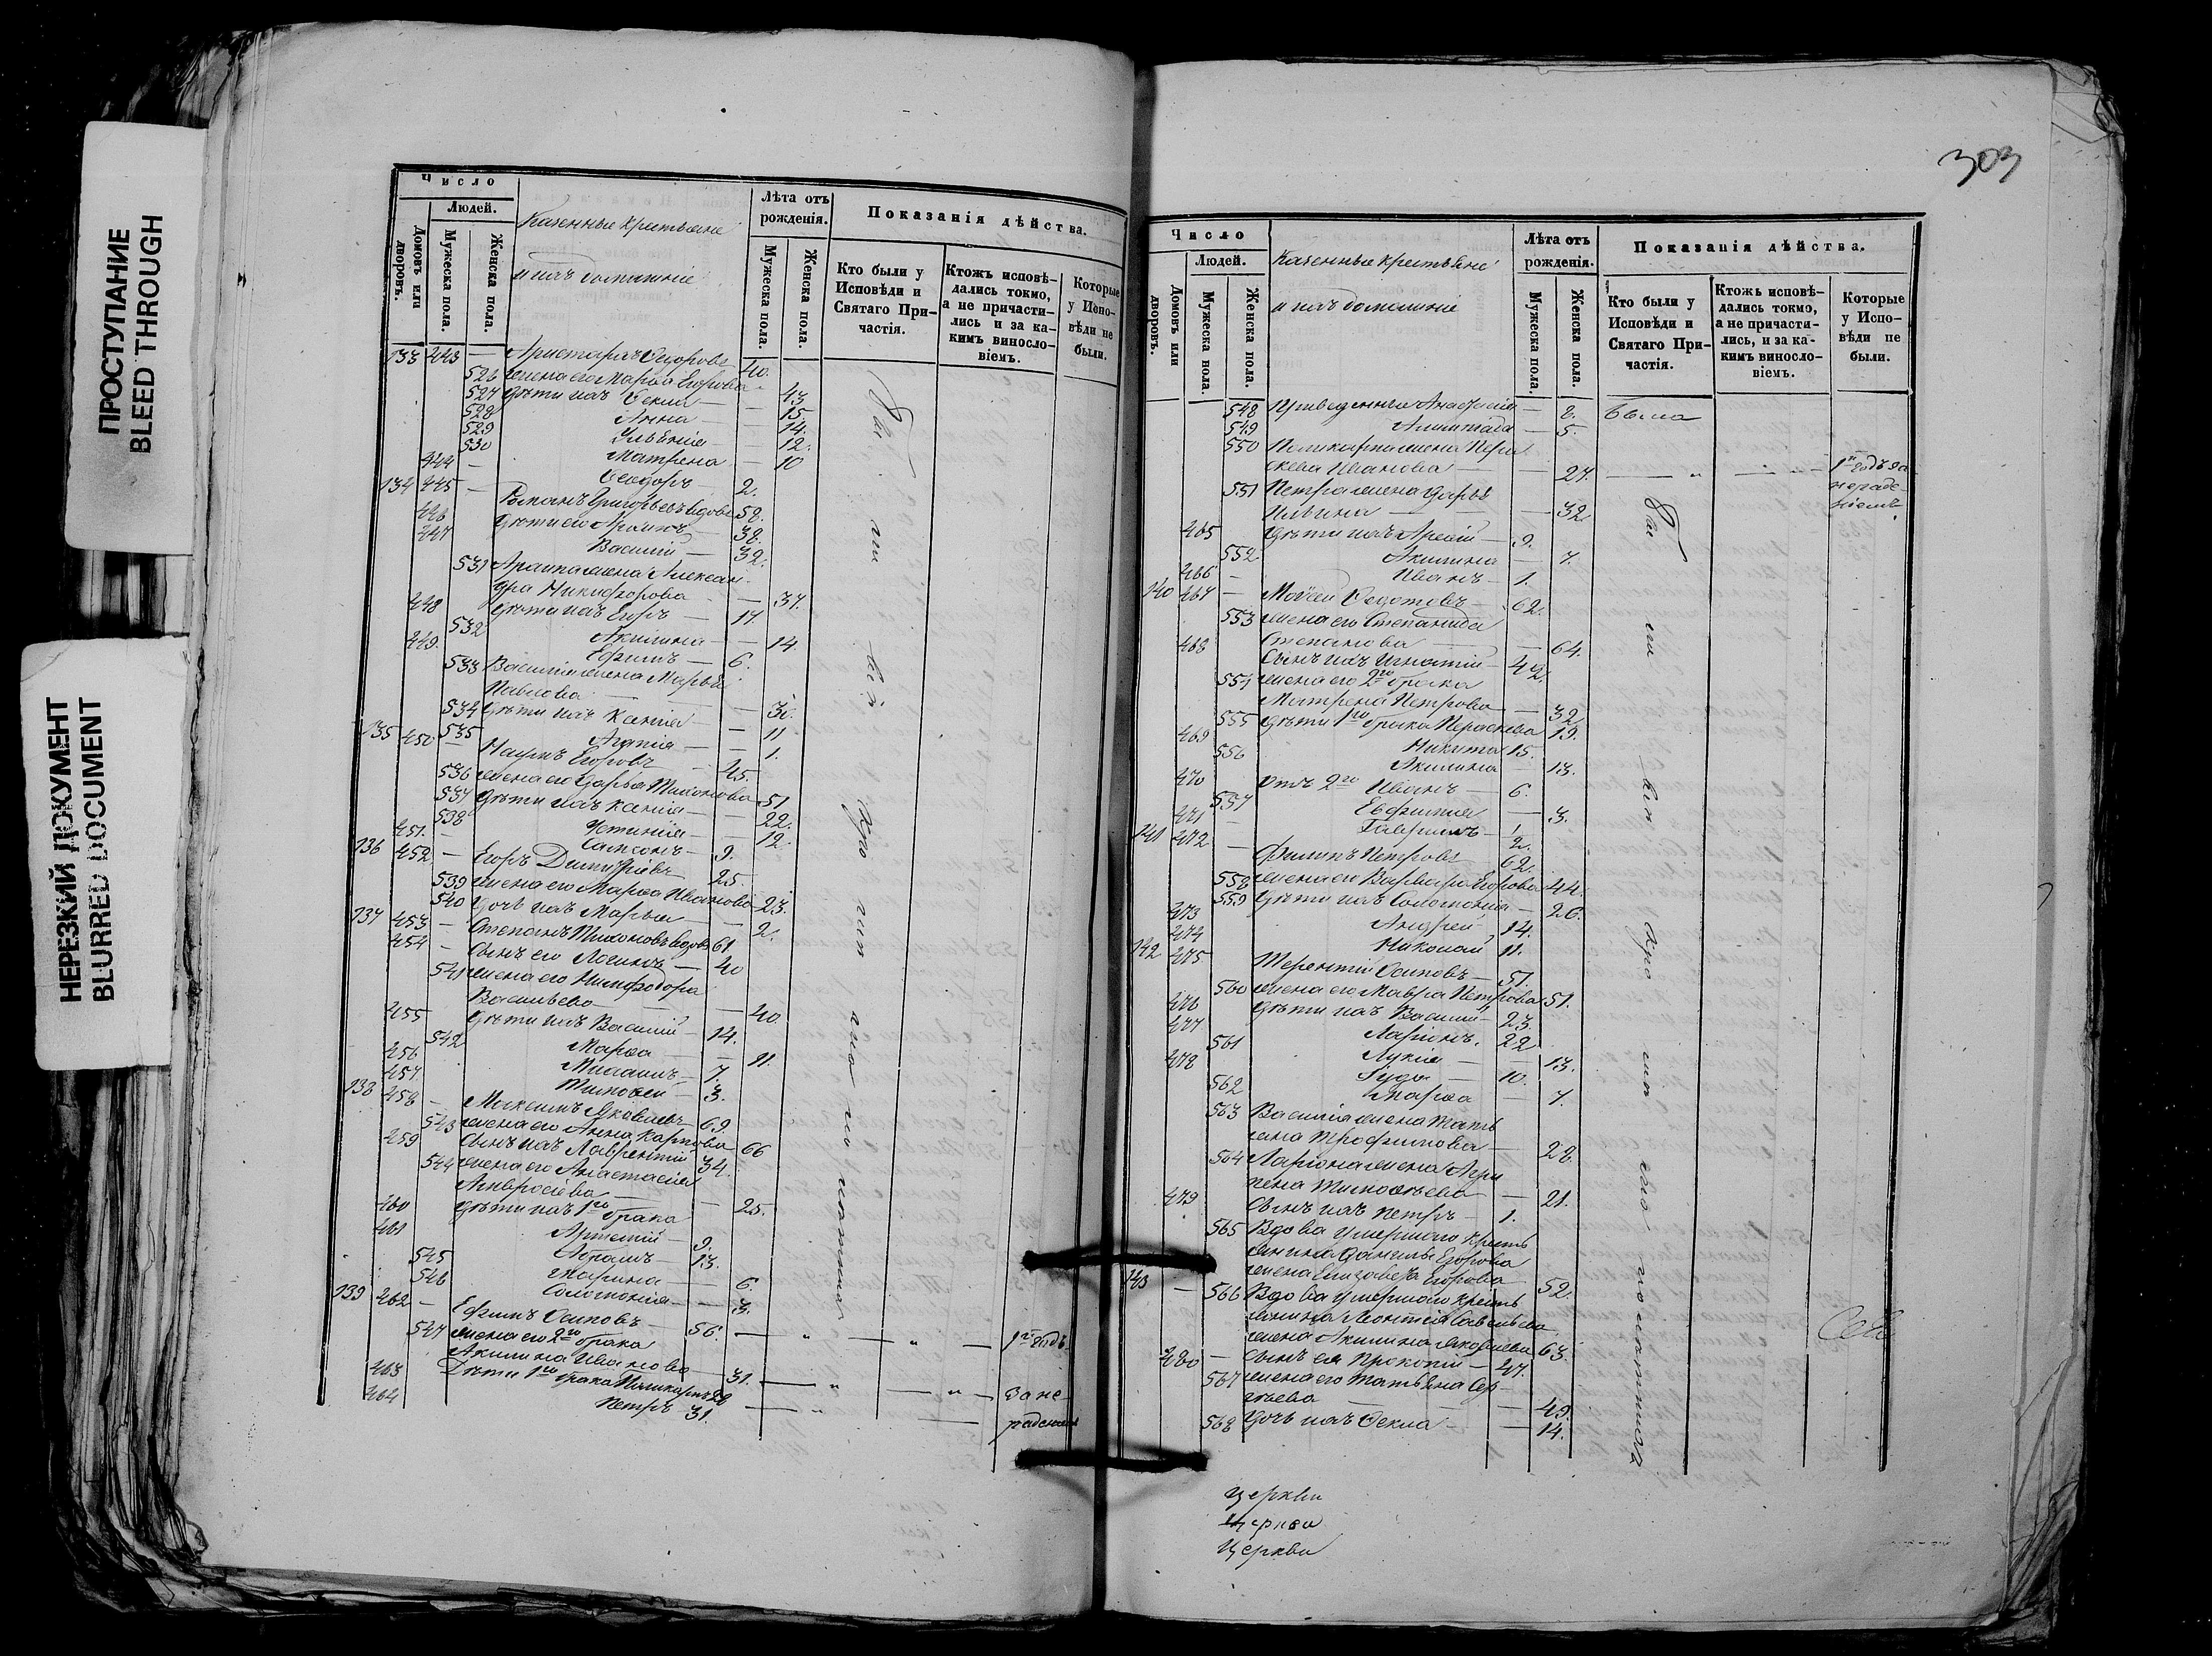 ПРОСТУПАНИЕ
BLEED THROUGH
НЕРЕЗКИЙ ДОКУМЕНТ
BLURRED DOCUMENT
Число
Людей.
Домовъ или дворовъ.
Мужеска пола.
Женска пола.
Казенные крестьяне
и ихъ домашніе
Лѣта отъ рожденія.
Мужеска пола.
Женска пола.
Показанія дѣйства.
Кто были у Исповѣди и Святаго Причастія.
Ктожъ исповѣдались токмо, а не причастились и за какимъ винословіемъ.
Которые у Исповѣди не были.
133 443 — Аристархъ Ѳедоровъ 40.
526 жена его Марѳа Егорова 43
527 дѣти ихъ Ѳекла — 15.
528 Анна — 14.
529 Ульянія — 12.
530 Матрена — 10
444 — Ѳеодоръ — 2.
134 445 — Романъ Григорьевъ вдовъ 58.
446 дѣти его 38.
447 Василій — 32.
531 жена Александра Никифорова — 37.
448 дѣти ихъ Егоръ — 17.
532 Акилина — 14.
449. Ефимъ — 6.
533 Василія жена Марья
Павлова — 30.
534 дѣти ихъ Ксенія — 11
535 Агапія — 1.
135 450 Наумъ Егоровъ 45.
536 жена его Дарья Тихонова 51
537 дѣти ихъ Ксенія — 22.
538 Устинія — 12.
451. — Самсонъ — 9.
136 452 — Егоръ Димитріевъ 25.
539 жена его Марѳа Иванова 23.
540 дочь ихъ Марья — 2.
137 453 — Степанъ Тихоновъ вдовъ 61
454 — сынъ его Логинъ — 40
541 жена его Нимфодора
Васильева — 40.
455 дѣти ихъ Василій — 14.
542 Марѳа — 11.
456 Михаилъ — 7.
457 Тимоѳей — 3.
138 458 — Максимъ Яковлевъ 69.
543 жена его Анна Карпова 66
459 сынъ ихъ Лаврентій 34.
544 жена его Анастасія
Амвросіева — 25.
дѣти ихъ 1го брака
460 Артемій — 9.
461 Абрамъ — 13.
545 Марина — 6.
546 Соломонія — 3.
139 462 — Ефимъ Осиповъ — 56. 1й годъ
547 жена его 2го брака
Акилина Иванова 31. за не-
463 Дѣти 1го брака Поликарпъ 28 радѣніемъ
464 Петръ 31.
303
Число
Людей.
Домовъ или дворовъ.
Мужеска пола
Женска пола.
Казенные крестьяне
и ихъ домашніе
Лѣта отъ рожденія.
Мужеска пола
Женска пола.
Показанія дѣйства.
Кто были у Исповѣди и Святаго Причастія.
Ктожъ исповѣдались токмо, а не причастились, и за какимъ винословіемъ.
Которые у Исповѣди не были.
548 Анастасія — 8. была
549 — 5.
550 Поликарпа жена Пера
скева Иванова — 27. 1й годъ за
551 Петра жена Дарья нераде-
Ильина — 32 ніемъ
465 дѣти ихъ — 9.
552 Акилина — 7.
466 — Иванъ — 1.
140 467 — Моѵсей Ѳедотовъ — 62.
553 жена его Степанида
Степанова — 64.
468 Сынъ ихъ Игнатій — 42.
554 жена его 2го брака
Матрена Петрова — 32
555 дѣти 1го брака Пераскева 19.
469 Никита 15.
556 Акилина — 13.
470 отъ 2го Иванъ — 6.
557 Евфимія — 3.
471 Гавріилъ — 1/2.
141 472 — Филипъ Петровъ — 62.
558 жена его Варвара Егорова 44.
559 дѣти ихъ Соломонія — 20.
473 Андрей 14.
474 Николай 11.
142 475 Терентій Осиповъ — 51.
560 жена его Мавра Петрова 51.
476 дѣти ихъ Василій — 23.
477 Ларіонъ. 22
561 Лукія — 13.
478 Іуда — 10.
562 Марѳа — 7.
563 Василія жена Татья
яна Трофимова — 28
564 Ларіона жена Агри
пена Тимоѳеева — 21.
479 сынъ ихъ Петръ — 1.
565 Вдова умершаго кресть
янина Данилы Егорова
жена Елизавета Егорова 52.
143 — 566 Вдова умершаго кресть
янина Леонтія Савельева
жена Акилина Яковлева 63.
480 — сынъ ея Прокопій — 47.
567 жена его Татьяна Сер-
гѣева — 49.
568 дочь ихъ Ѳекла — 14.
Церкви
Церкви
Церкви